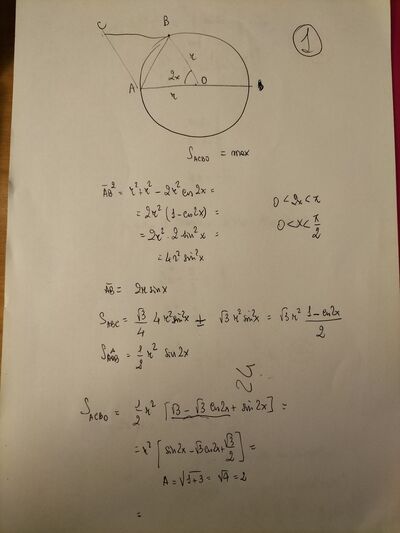 C
B
r
2x
A
O
r
B
1
S_ACBO = max
AB² = r² + r² - 2r² cos 2x =
= 2r² (1 - cos 2x) =
= 2r² · 2 sin² x =
= 4r² sin² x
0 < 2x < π
0 < x < π/2
AB = 2r sin x
S_ABC = √3/4 4r² sin² x = √3 r² sin² x = √3 r² (1 - cos 2x)/2
S_AOB = 1/2 r² sin 2x
S_ACBO = 1/2 r² [√3 - √3 cos 2x + sin 2x] =
= r² [sin 2x - √3 cos 2x + √3/2] =
A = √(1+3) = √4 = 2
=